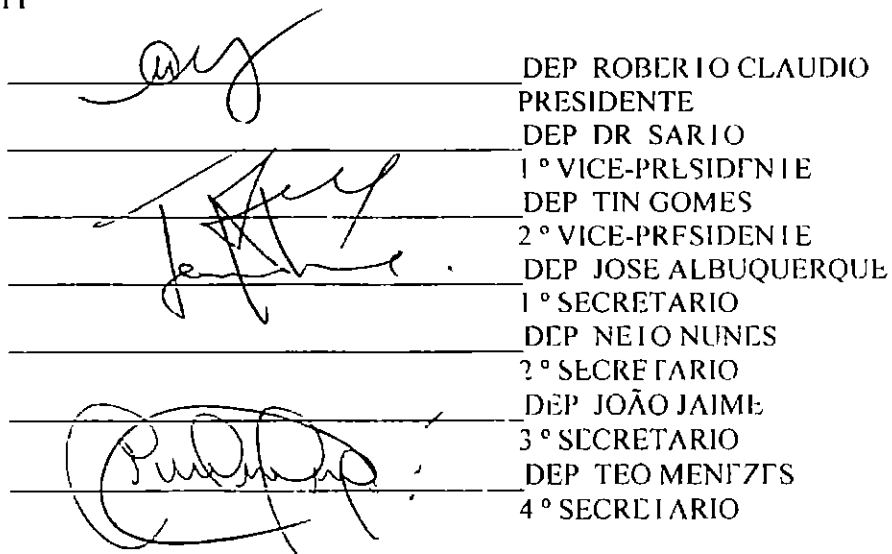 DEP ROBERTO CLAUDIO
PRESIDENTE
DEP DR SARTO
1º VICE-PRESIDENTE
DEP TIN GOMES
2º VICE-PRESIDENTE
DEP JOSE ALBUQUERQUE
1º SECRETARIO
DEP NETO NUNES
2º SECRETARIO
DEP JOÃO JAIME
3º SECRETARIO
DEP TEO MENEZES
4º SECRETARIO